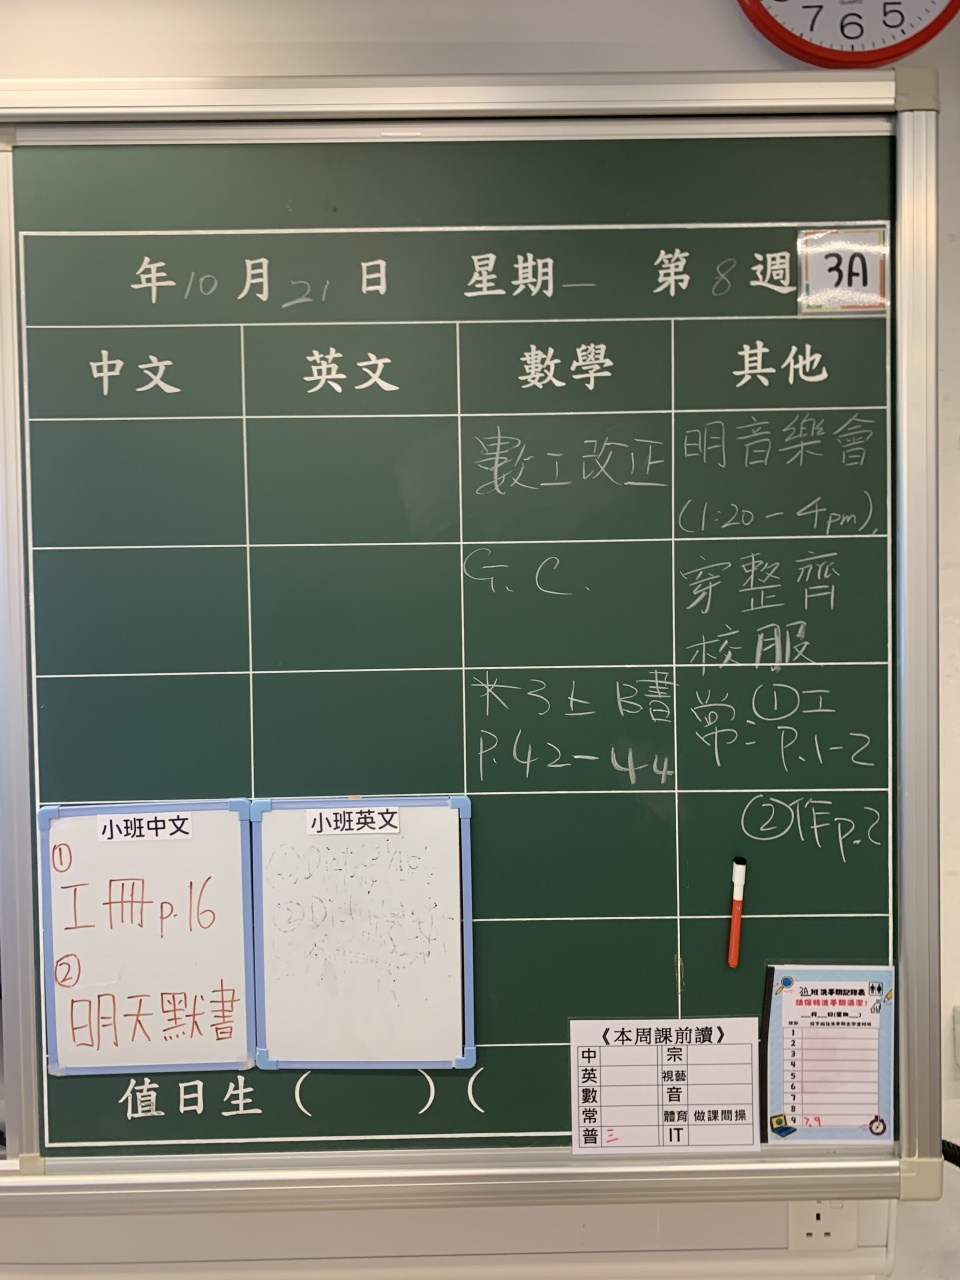 7 6 5
年10月21日 星期一 第8週 3A
中文 英文 數學 其他
數工改正
明音樂會
(1:20-4pm),
G.C.
穿整齊
校服
*3上B書
P.42-44
常:①工
P.1-2
②作p.2
小班中文
①
工冊p.16
②
明天默書
小班英文
值日生( )(
《本周課前讀》
中 宗
英 視藝
數 音
常 體育 做課間操
普 三 IT
3A班洗手間記錄表
請保持洗手間清潔!
月 日(星期 )
1
2
3
4
5
6
7
8
9 7,9